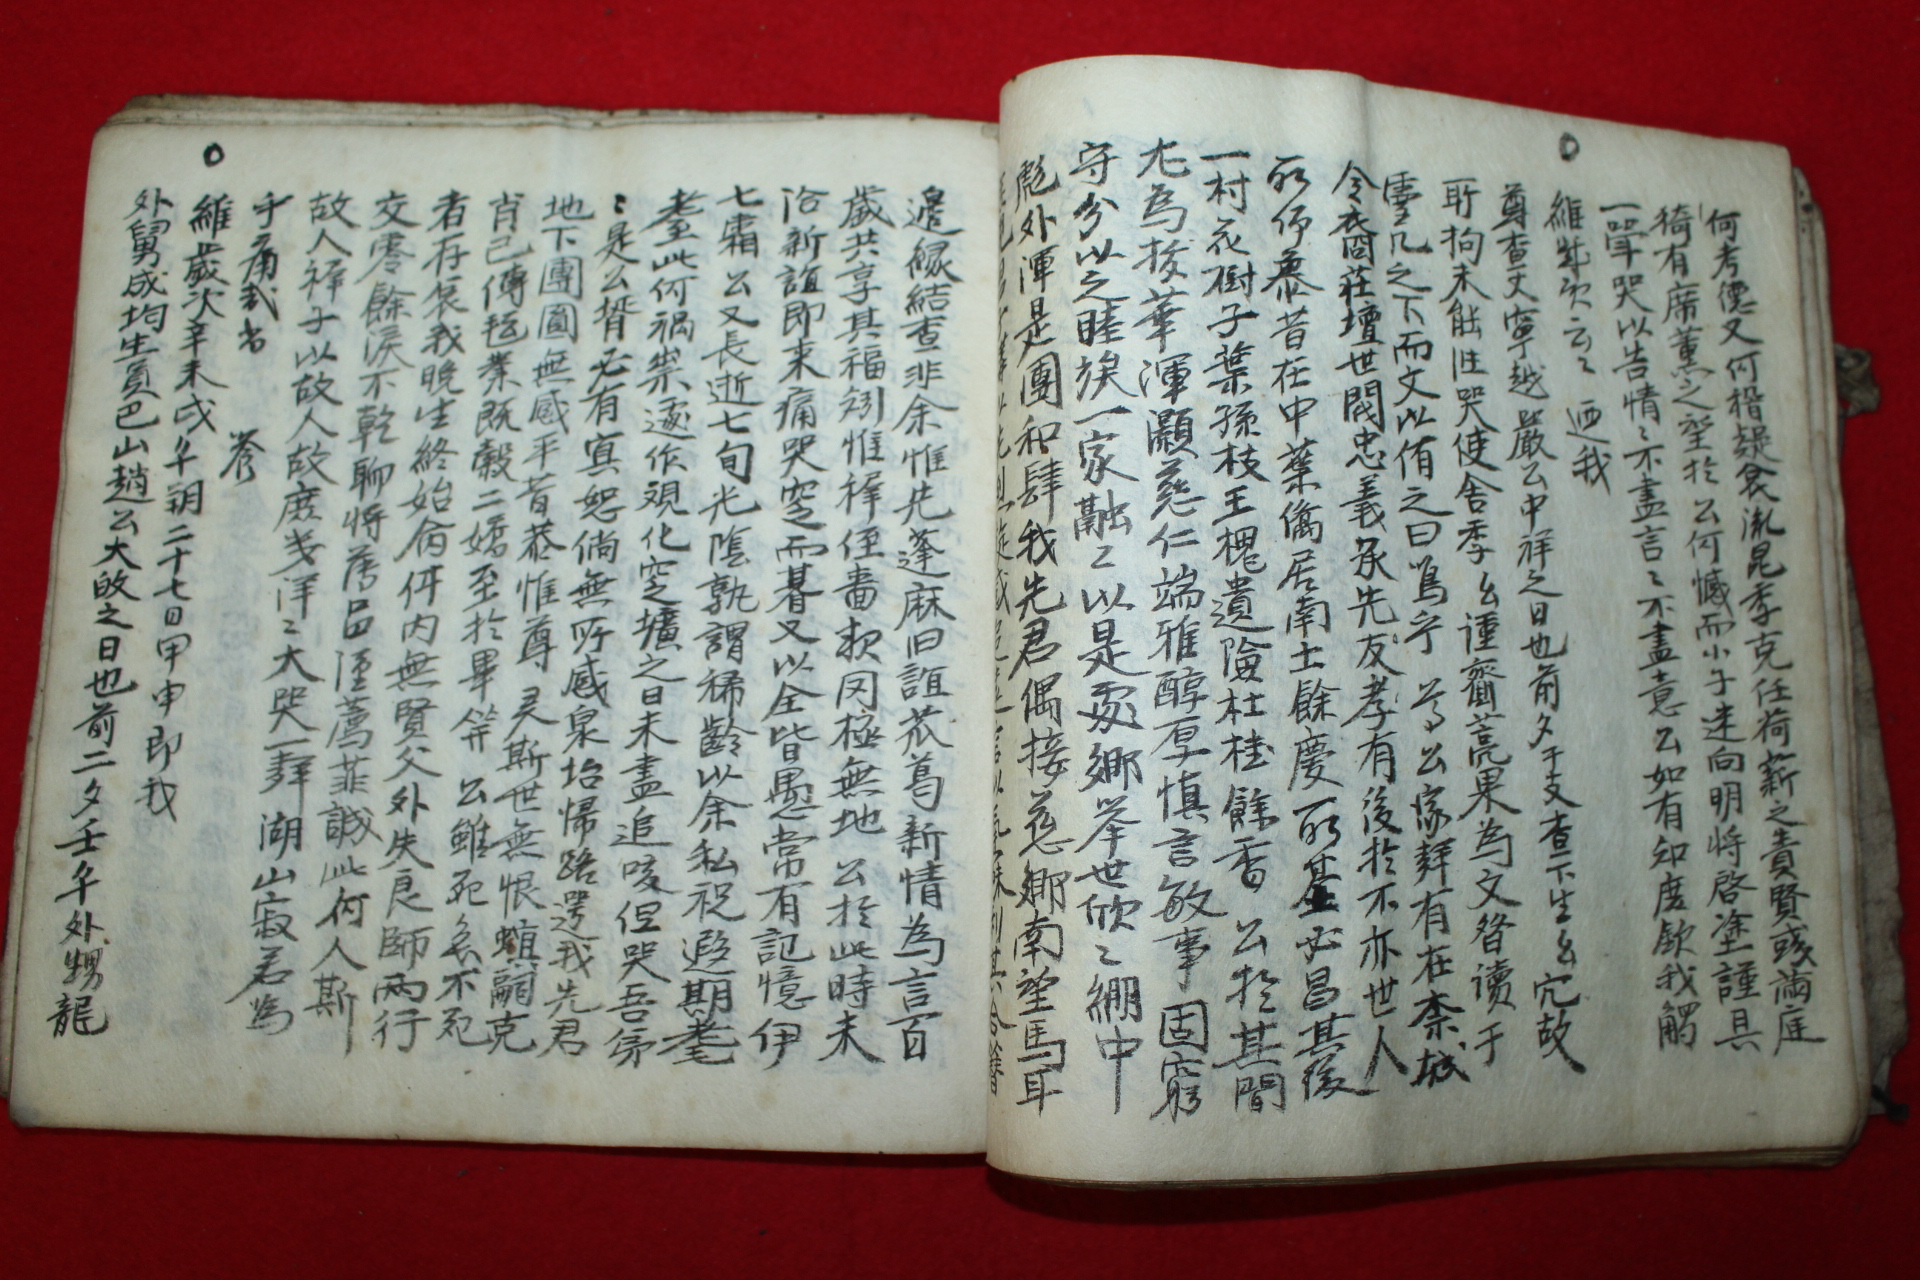 何考德又何楷疑衾胤昆季克任荷薪之責賢或滿庭
猗有席薰之望於公何憾而小子迷向明將啓塗謹具
一聲哭以告情〻不盡言〻不盡意公如有知庶歆我觴
維歲次云〻 迺我
尊査丈寧越嚴公中祥之日也前夕干支査下生公冗故
所拘未能往哭使舍季公謹齎荒果為文替讀于
靈几之下而文以侑之曰嗚乎 為公家群有在柰城
令裔莊壇世閥忠義承先友孝有後於不亦世人
所仰慕昔在中葉僑居南土餘慶所基必昌其後
一村花樹子葉孫枝王槐遺陰杜桂餘香 公於其間
尤為拔華渾灝慈仁端雅醇厚慎言敏事 固窮
守分以之睦族一家融〻以是處鄉擧世欣〻綳中
彪外渾是團和肆我先君偶接慈鄉南望馬耳
邊緣結查非余惟先蓬麻旧誼荿蔦新情為言百
歲共享其福矧惟稚侄嗇欵罔極無地 公於此時未
洽新誼即來痛哭窆而朞又以全皆愚常有記憶伊
七霜公又長逝七旬光陰孰謂稀齡以余私祝遐期耄
耋此何禍祟遽作觀化窆壙之日未盡追唆但哭吾弟
〻是公壻必有寘恕倘無所感泉坮帰路選我先君
地下團圓無感平昔恭惟尊灵斯世無恨螟嗣克
肖己傳氊業既穀二嬌至於畢笄 公雖死矣不死
者存哀我晚生終始侖伴內無賢父外失良師兩行
交零餘淚不乾聊將舊品謹薦菲誠此何人斯
故人穉子以故人故庶幾洋〻大哭一聲 湖山寂若為
乎痛哉尚 饗
維歲次辛未戊午朔二十七日甲申即我
外舅成均生員巴山趙公大啟之日也前二夕壬午外甥龍